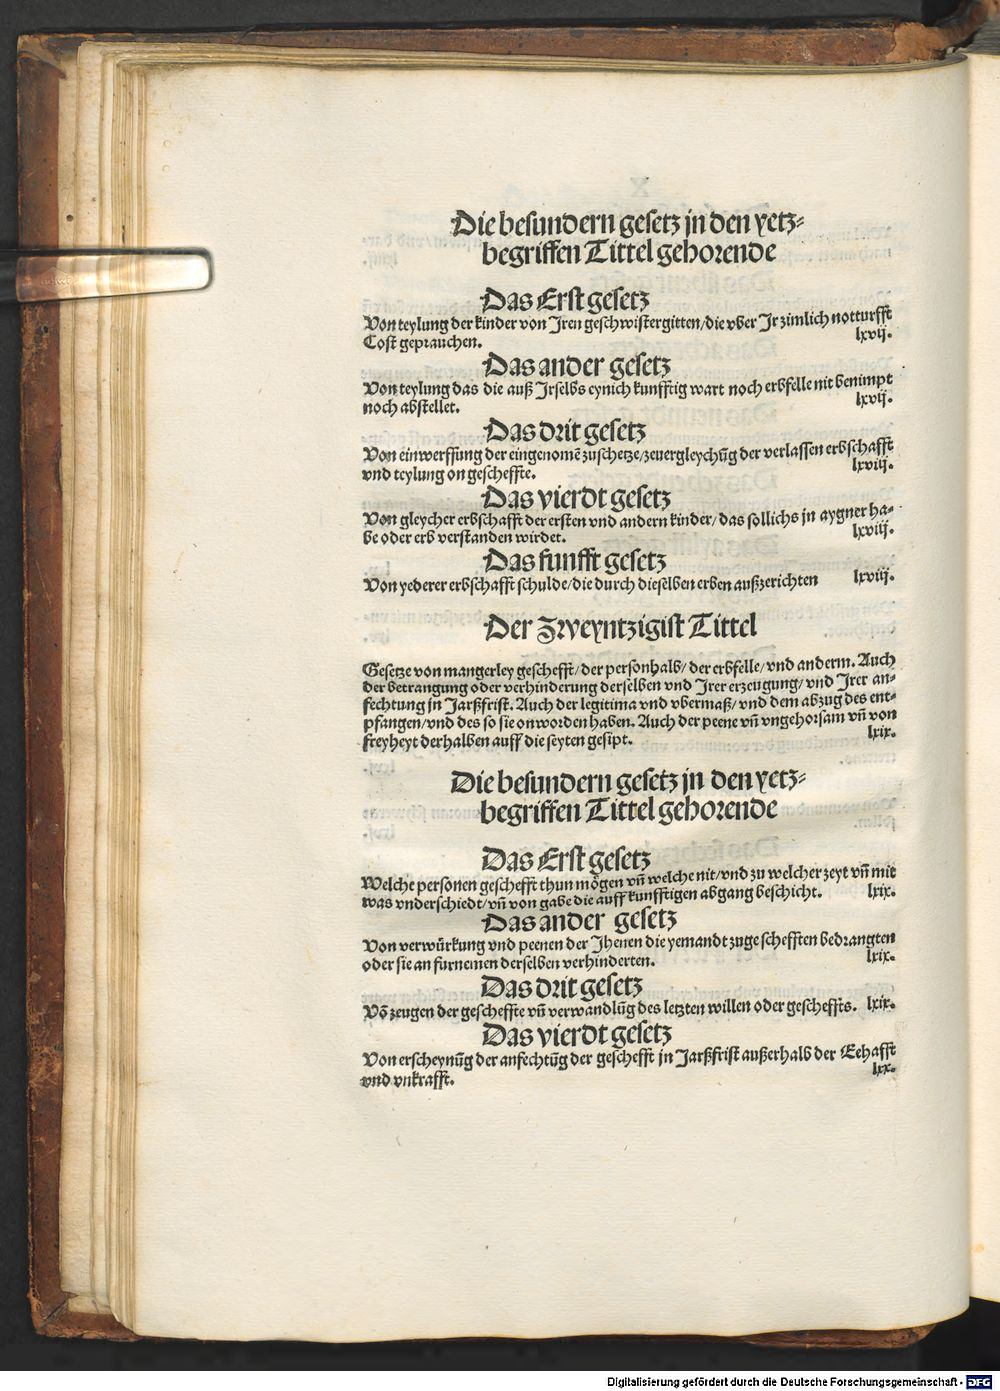 Die besundern gesetz jn den yetz-
begriffen Tittel gehorende
Das Erst gesetz
Von teylung der kinder von Jren geschwistergitten/die vber Jr zimlich notturfft
Cost geprauchen. lxvij.
Das ander gesetz
Von teylung das die auß Jrselbs eynich kunfftig wart noch erbfelle nit benimpt
noch abstellet. lxvij.
Das drit gesetz
Von einwerffung der eingenomē zuschetze/zeuergleychūg der verlassen erbschafft
vnd teylung on gescheffte. lxviij.
Das vierdt gesetz
Von gleycher erbschafft der ersten vnd andern kinder/das sollichs jn aygner ha-
be oder erb verstanden wirdet. lxviij.
Das funfft gesetz
Von yederer erbschafft schulde/die durch dieselben erben außzerichten lxviij.
Der Zweyntzigist Tittel
Gesetze von mangerley geschefft/der personhalb/der erbfelle/vnd anderm. Auch
der betrangung oder verhinderung derselben vnd Jrer erzeugung/vnd Jrer an-
fechtung jn Jarßfrist. Auch der legitima vnd vbermaß/vnd dem abzug des ent-
pfangen/vnd des so sie onworden haben. Auch der peene vn̄ vngehorsam vn̄ von
freyheyt derhalben auff die seyten gesipt. lxix.
Die besundern gesetz jn den yetz-
begriffen Tittel gehorende
Das Erst gesetz
Welche personen geschefft thun mögen vn̄ welche nit/vnd zu welcher zeyt vn̄ mit
was vnderschiedt/vn̄ von gabe die auff kunfftigen abgang beschicht. lxix.
Das ander gesetz
Von verwürkung vnd peenen der Jhenen die yemandt zuge schefften bedrangten
oder sie an furnemen derselben verhinderten. lxix.
Das drit gesetz
Vō zeugen der gescheffte vn̄ verwandlūg des letzten willen oder gescheffts. lxix.
Das vierdt gesetz
Von erscheynūg der anfechtūg der geschefft jn Jarßfrist außerhalb der Eehafft
vnd vnkrafft. lxx.
Digitalisierung gefördert durch die Deutsche Forschungsgemeinschaft - DFG